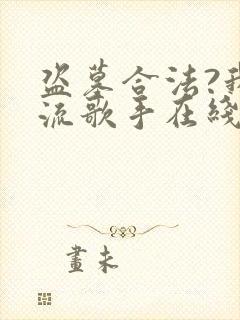 盗墓合法?我
流歌手在綫
畫未